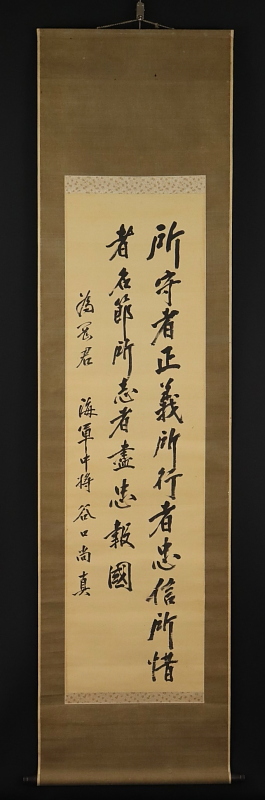 所守者正義所行者忠信所惜
者名節所志者盡忠報國
為君 海軍中將谷口尚真